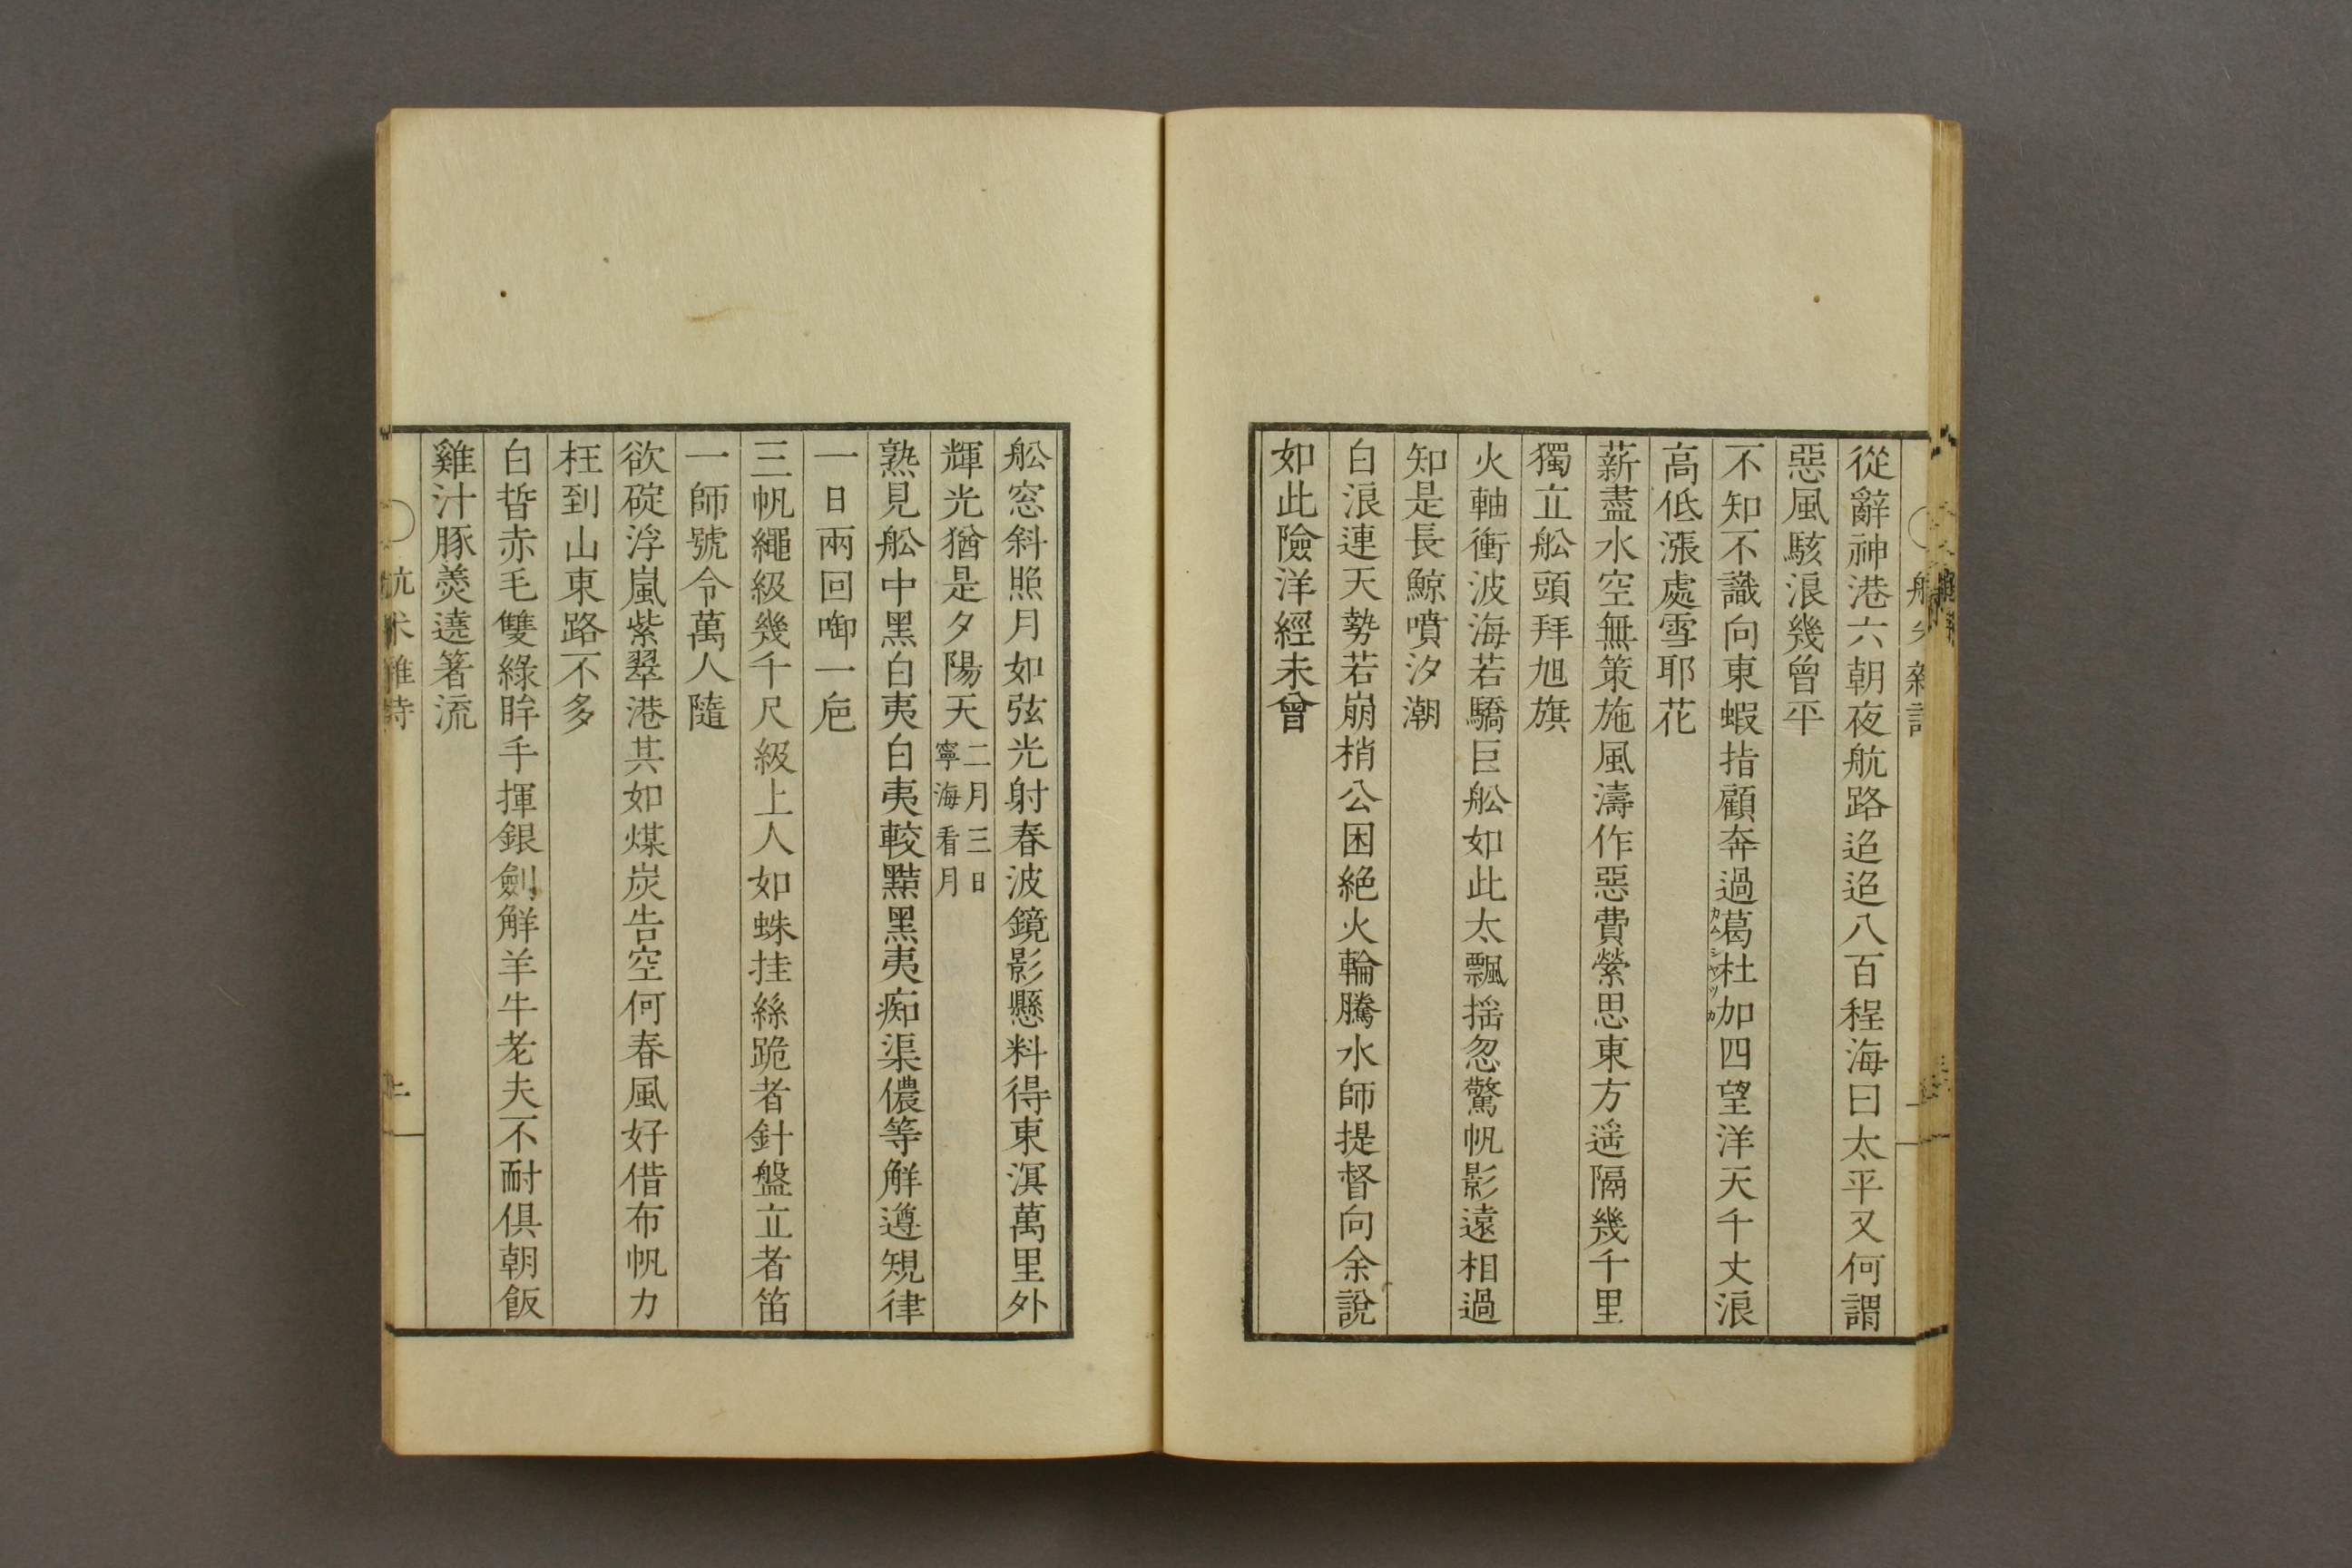 從辭神港六朝夜航路迢迢八百程海曰太平又何謂
惡風駭浪幾曾平
不知不識向東蝦指顧奔過葛杜加四望洋天千丈浪
カムシヤツカ
高低漲處雪耶花
薪盡水空無策施風濤作惡費縈思東方遥隔幾千里
獨立舩頭拜旭旗
火軸衝波海若驕巨舩如此太飄揺忽驚帆影遠相過
知是長鯨噴汐潮
白浪連天勢若崩梢公困絶火輪騰水師提督向余說
如此險洋經未曾
舩窓斜照月如弦光射春波鏡影懸料得東溟萬里外
輝光猶是夕陽天
二月三日
寧海看月
熟見舩中黑白夷白夷較黠黑夷痴渠儂等觧遵䂓律
一日兩回啣一巵
三帆繩級幾千尺級上人如蛛挂絲跪者針盤立者笛
一師號令萬人隨
欲碇浮嵐紫翠港其如煤炭告空何春風好借布帆力
枉到山東路不多
白晳赤毛雙綠眸手揮銀劍觧羊牛老夫不耐俱朝飯
雞汁豚羮遶箸流